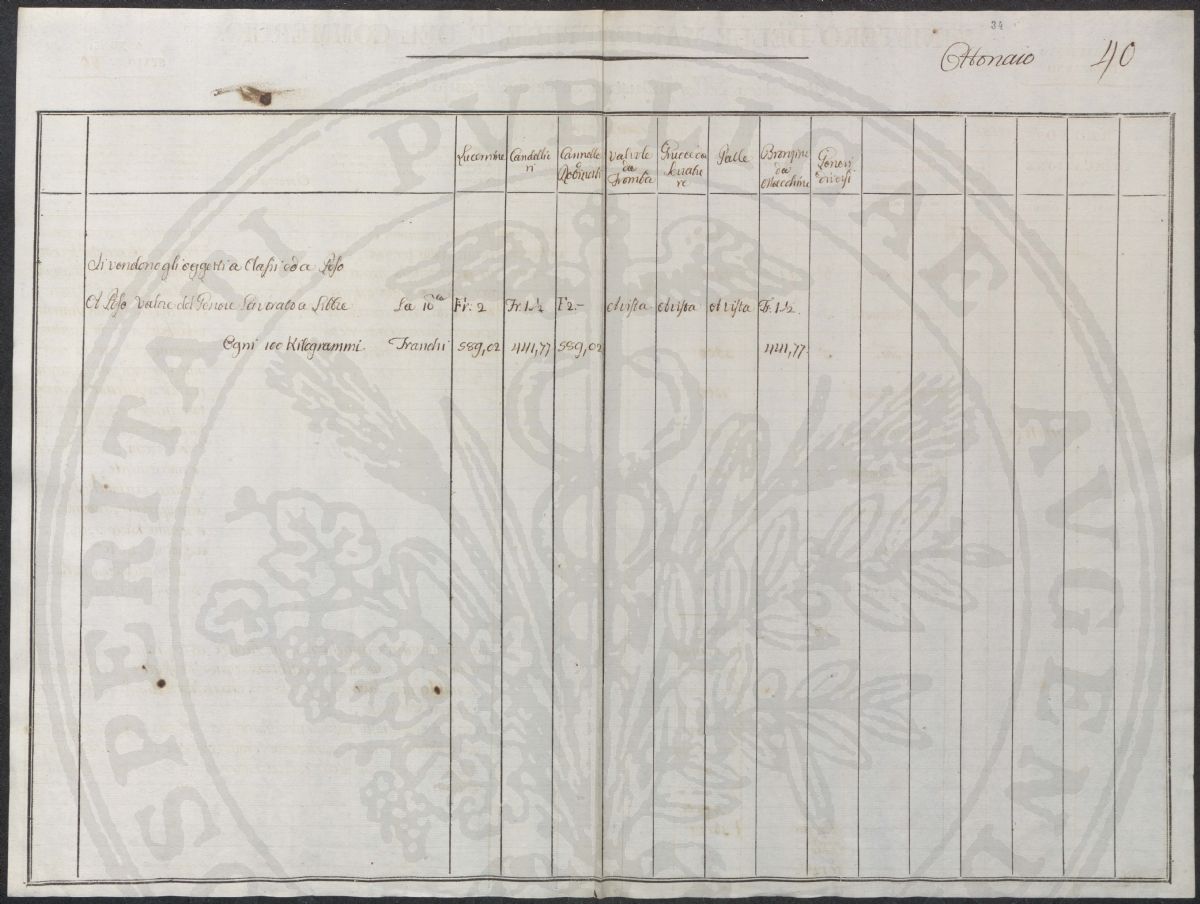 34
Ottonaio 40
Lucernine Candellieri Cannelle e Robinetti Valvole da Tromba da Serature Palle Bronzine da Macchine Generi diversi
Si vendono gli oggetti a Classi ed a Peso
A Peso Valore del Genere Lavorato a Libbre La lb.ca Fr. 2 Fr. 1.½ F 2.- A vista A vista A vista Fr. 1.½.
Ogni 100 Kilogrammi Franchi 589,02 441,77 589,02 441,77
SPERITATI PVBLICAE AVGEN